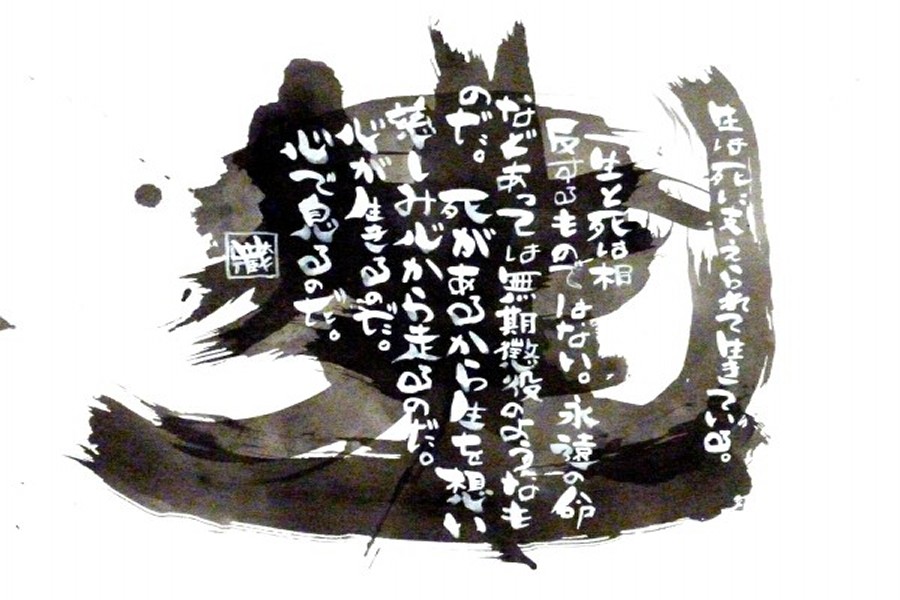 生は死に支えられて生きている。
一生と死は相
反するものではない。永遠の命
などあっては無期懲役のようなも
のだ。死があるから生を想い
慈しみ心から走るのだ。
心が生きるのだ。
心で息るのだ。